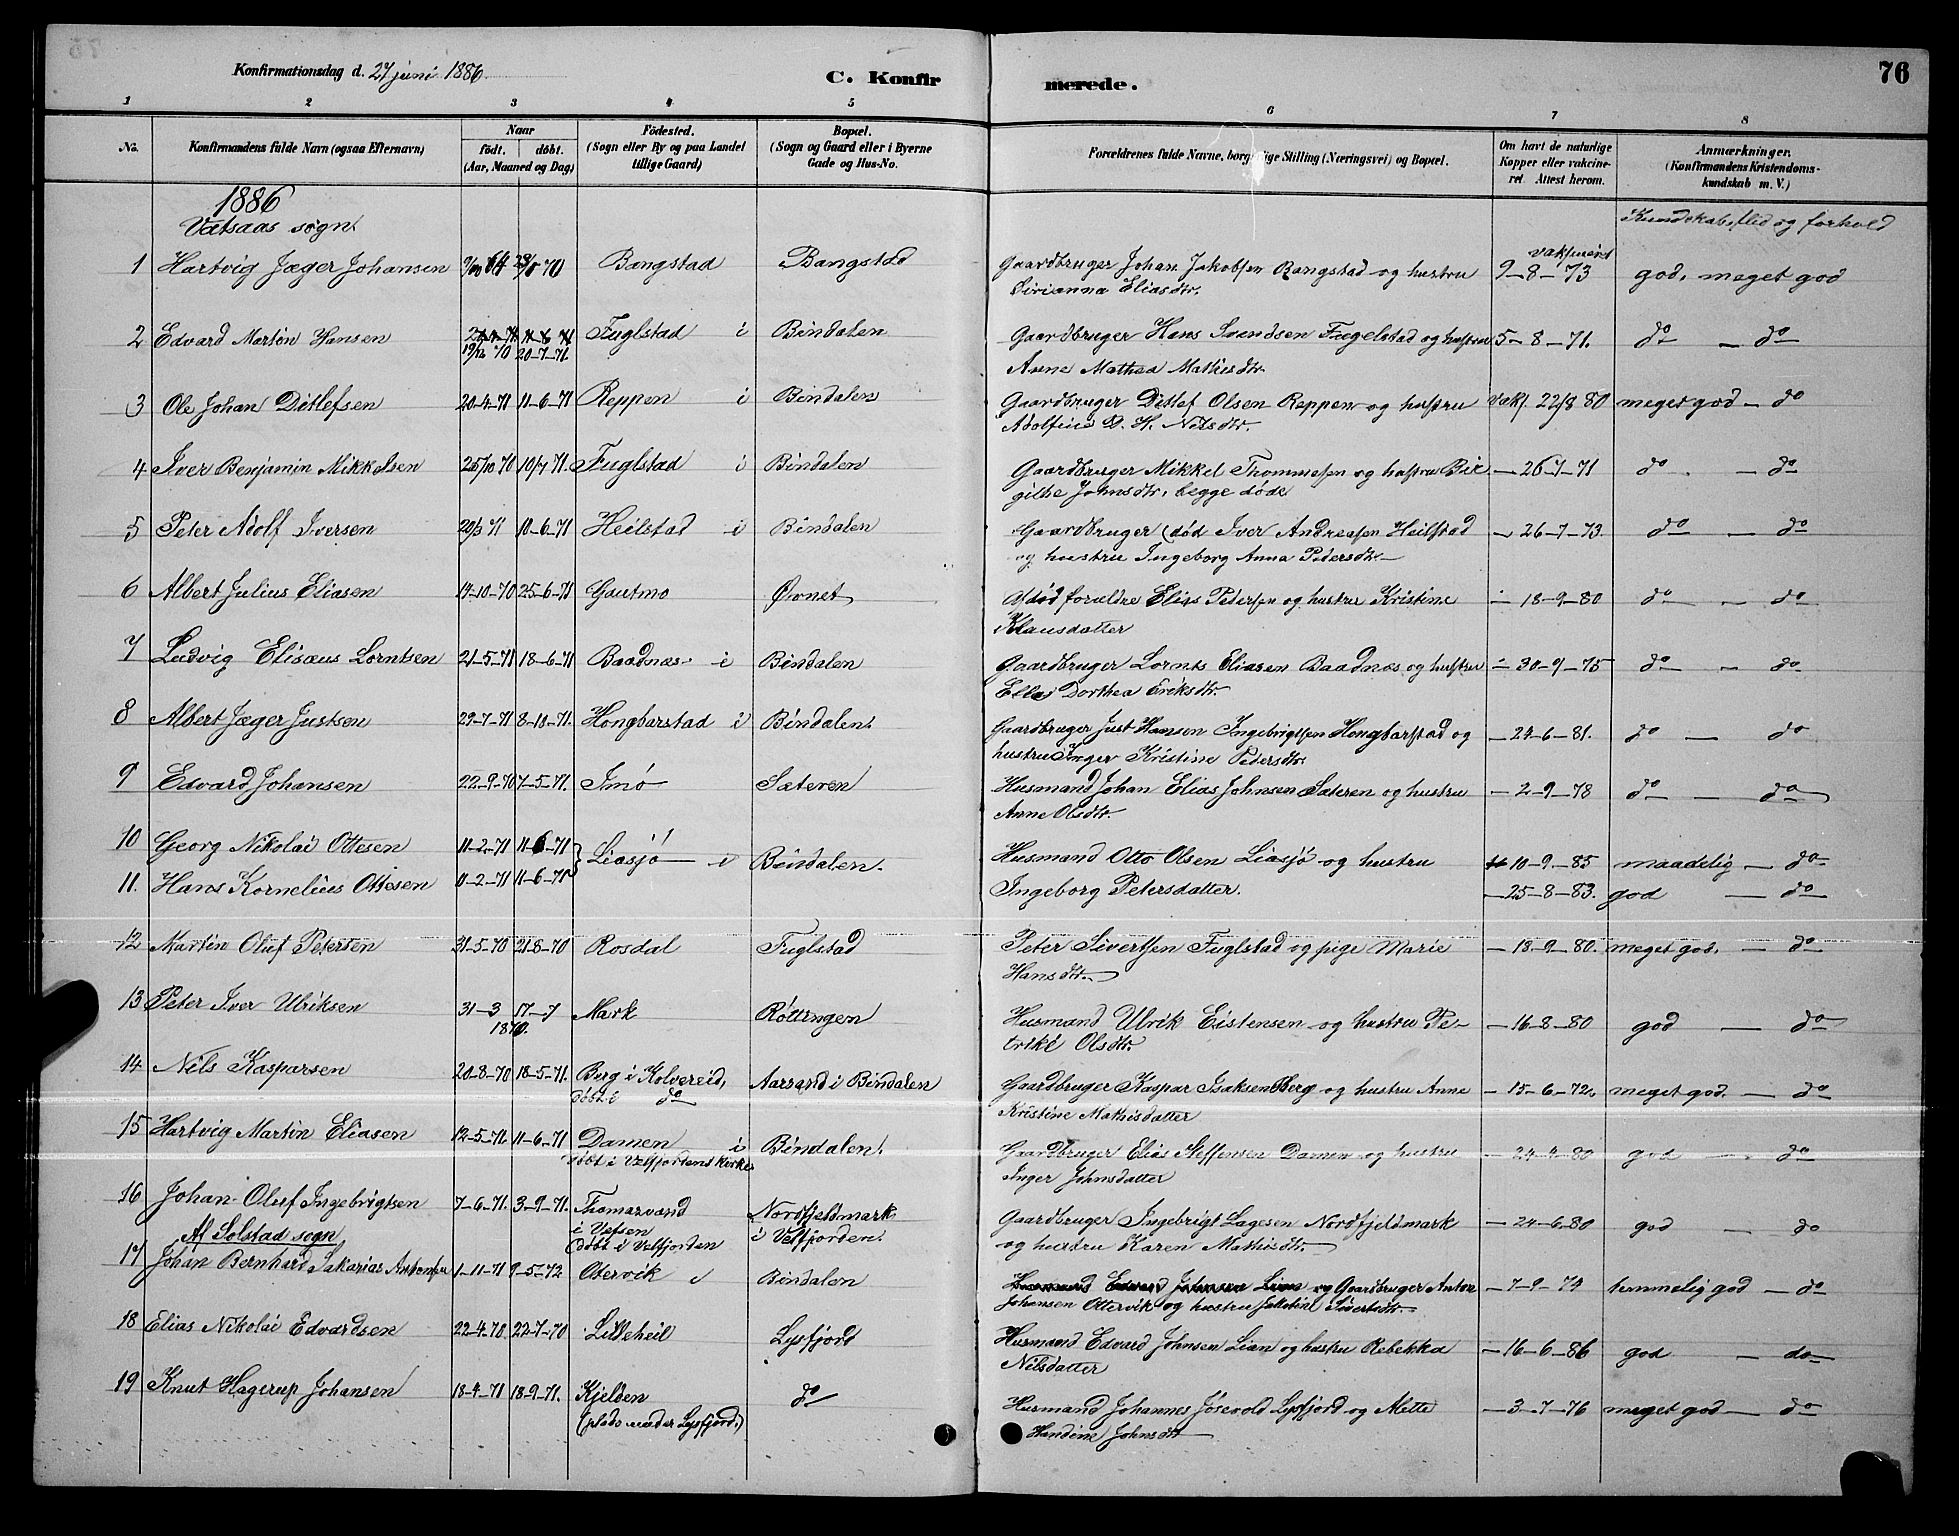 Konfirmationsdag d. 27 juni 1886.
C. Konfir merede.
76
1 2 3 4 5 6 7 8
No. Konfirmandens fulde Navn (ogsaa Efternavn) Naar født. døbt. (Aar, Maaned og Dag) Födested. (Sogn eller By og paa Landet tillige Gaard) Bopæl. (Sogn og Gaard eller i Byerne Gade og Hus-No. Forældrenes fulde Navne, borgerlige Stilling (Næringsvei) og Bopæl. Om havt de naturlige Kopper eller vakcineret Attest herom. Anmærkninger. (Konfirmandens Kristendomskundskab m. V.)
1886
Vatsaas sogn.
Kundskab, flid og forhold
1 Hartvig Jæger Johansen 70 Bangstad Bangstad Gaardbruger Johan Jakobsen Bangstad og hustru vaksinert 9-8-73 god, meget god
Sirianna Eliasdtr.
2 Edvard Martin Hansen 19/12 70 20-7-71. Fuglstad i Bindalen Gaardbruger Hans Svendsen Fugelstad og hustru 5-8-71. do - do
Anne Mathea Mathisdtr.
3 Ole Johan Ditlefsen 20-4-71 11-6-71 Reppen i Bindalen Gaardbruger Detlef Olsen Reppen og hustru vakf. 22/8 80 meget god - do
Adolfine D. H. Nilsdtr.
4 Iver Benjamin Mikkelsen 25/10 70 10/7 71. Fuglstad i Bindalen Gaardbruger Mikkel Thommesen og hustru Bir - 26-7-71 do - do
githe Johnsdtr. begge døde
5 Peter Adolf Iversen 20/3 71 10-6-71 Heilstad i Bindalen Gaardbruger (død Iver Andreasen Heilstad - 26-7-73. do - do
og hustru Ingeborg Anna Pedersdtr.
6 Albert Julius Eliasen 14-10-70 25-6-71 Gautmo Øvnet Afdød forældre Elias Pedersen og hustru Kristine - 18-9-80 do - do
Klausdatter
7 Ludvig Elisæus Lorntsen 21-5-71 18-6-71 Baadnæs i Bindalen Gaardbruger Lornts Eliasen Baadnæs og hustru - 30-9-75 do - do
Ellen Dorthea Eriksdtr.
8 Albert Jæger Justsen 29-7-71 8-10-71. Hongbarstad i Bindalen. Gaardbruger Just Hansen Ingebrigtsen Hongbarstad og - 24-6-81. do - do
hustru Inger Kristine Pedersdtr.
9 Edvard Johansen 22-9-70 7-5-71. Imø Sæteren Husmand Johan Elias Johnsen Sæteren og hustru - 2-9-78 do - do
Anne Olsdtr.
10 Georg Nikolai Ottesen 11-2-71 11-6-71 Liasjø i Bindalen. Husmand Otto Olsen Liasjø og hustru 10-9-85 maadelig - do
11. Hans Kornelius Ottesen 11-2-71 11-6-71 Ingeborg Petersdatter. - 25-8-83. god - do
12 Martin Oluf Petersen 31-5-70 21-8-70 Rosdal Fuglstad Peter Sivertsen Fuglstad og pige Marie - 18-9-80. meget god. - do
Hansdtr.
13 Peter Iver Ulriksen 31-3 17-7 1870. Mark Røttingen Husmand Ulrik Eistensen og hustru Pe- - 16-8-80 god - do
trike Olsdtr.
14 Nils Kasparsen 20-8-70 18-5-71. Berg i Kolvereid, Aarsand i Bindalen Gaardbruger Kaspar Isaksen Berg og hustru Anne - 15-6-72. meget god. - do
døbt i do Kristine Mathisdatter
15 Hartvig Martin Eliasen 12-5-71. 11-6-71 Damen i Bindalen. Gaardbruger Elias Steffensen Damen og hustru - 24-4-80 god - do
døbt i Velfjordens kirke Inger Johnsdatter
16 Johan Oluf Ingebrigtsen 7-6-71. 3-9-71. Thomasvand Nordfjeldmark Gaardbruger Ingebrigt Lagesen Nordfjeldmark - 24-6-80 god - do
i Vefsen i Velfjorden. og hustru Karen Mathisdtr.
døbt i Velfjorden
Af Solstad sogn
17 Johan Bernhard Sakarias Antonsen 1-11-71 9-5-72 Otervik i Bindalen Husmand Edvard Johnsen Lian og Gaardbruger Anton - 7-9-74 temmelig god - do
Johansen Ottervik og hustru Jakobine Sivertsdtr.
18 Elias Nikolai Edvardsen 22-4-70. 22-7-70 Lilleheil Lysfjord Husmand Edvard Johnsen Lian og hustru Rebekka - 16-6-86 god - do
Nilsdatter
19 Knut Hagerup Johansen 18-4-71 18-9-71. Kjelden do Husmand Johannes Jøsevold Lysfjord og Mette - 3-7-76 meget god - do
(plads under Lysfjord.) Handine Johnsdtr